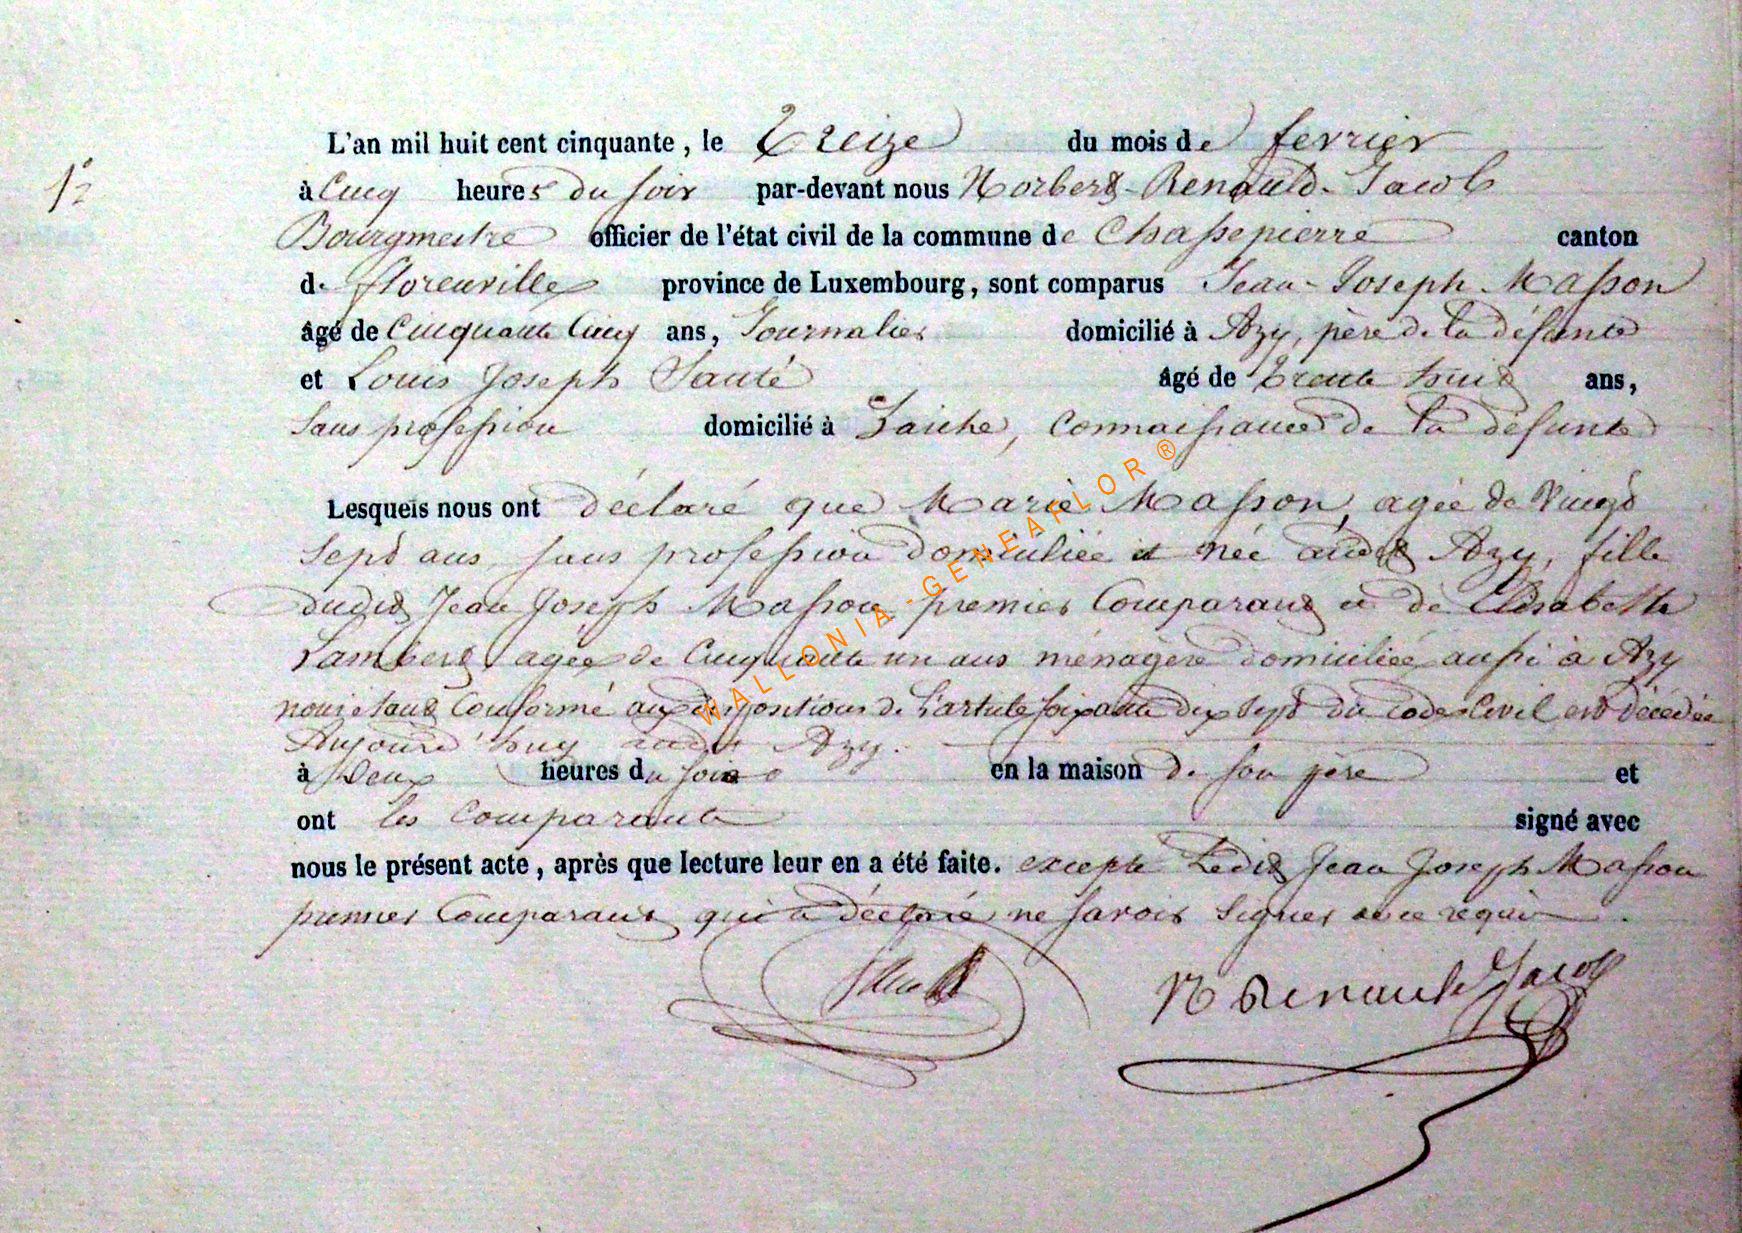 L'an mil huit cent cinquante, le Treize du mois de fevrier
à Cinq heures du soir par-devant nous Norbert-Renauld-Jacob
Bourgmestre officier de l'état civil de la commune de Chassepierre canton
de florenville province de Luxembourg, sont comparus Jean-Joseph Masson
âgé de Cinquante Cinq ans, Journalier domicilié à Azy, père de la défunte
et Louis Joseph Santé âgé de Trente huit ans,
Sans profession domicilié à Laiche, connaissance de la défunte
Lesquels nous ont déclaré que Marie Masson, agée de Vingt
Sept ans, sans profession domiciliée et née audit Azy, fille
dudit Jean Joseph Masson premier Comparant et de Elisabethe
Lambert, agée de Cinquante un ans ménagère domiciliée aussi à Azy
nous étant Conformé aux dispositions de l'article soixante dix sept du code Civil est décédée
Aujourd'huy audit Azy.
à Deux heures du soir en la maison de son père et
ont les Comparants signé avec
nous le présent acte, après que lecture leur en a été faite. excepté Ledit Jean Joseph Masson
premier Comparant qui a déclaré ne savoir signer de ce requis.
N Renauld Jacob
WALLONIA-GENEAFLOR®